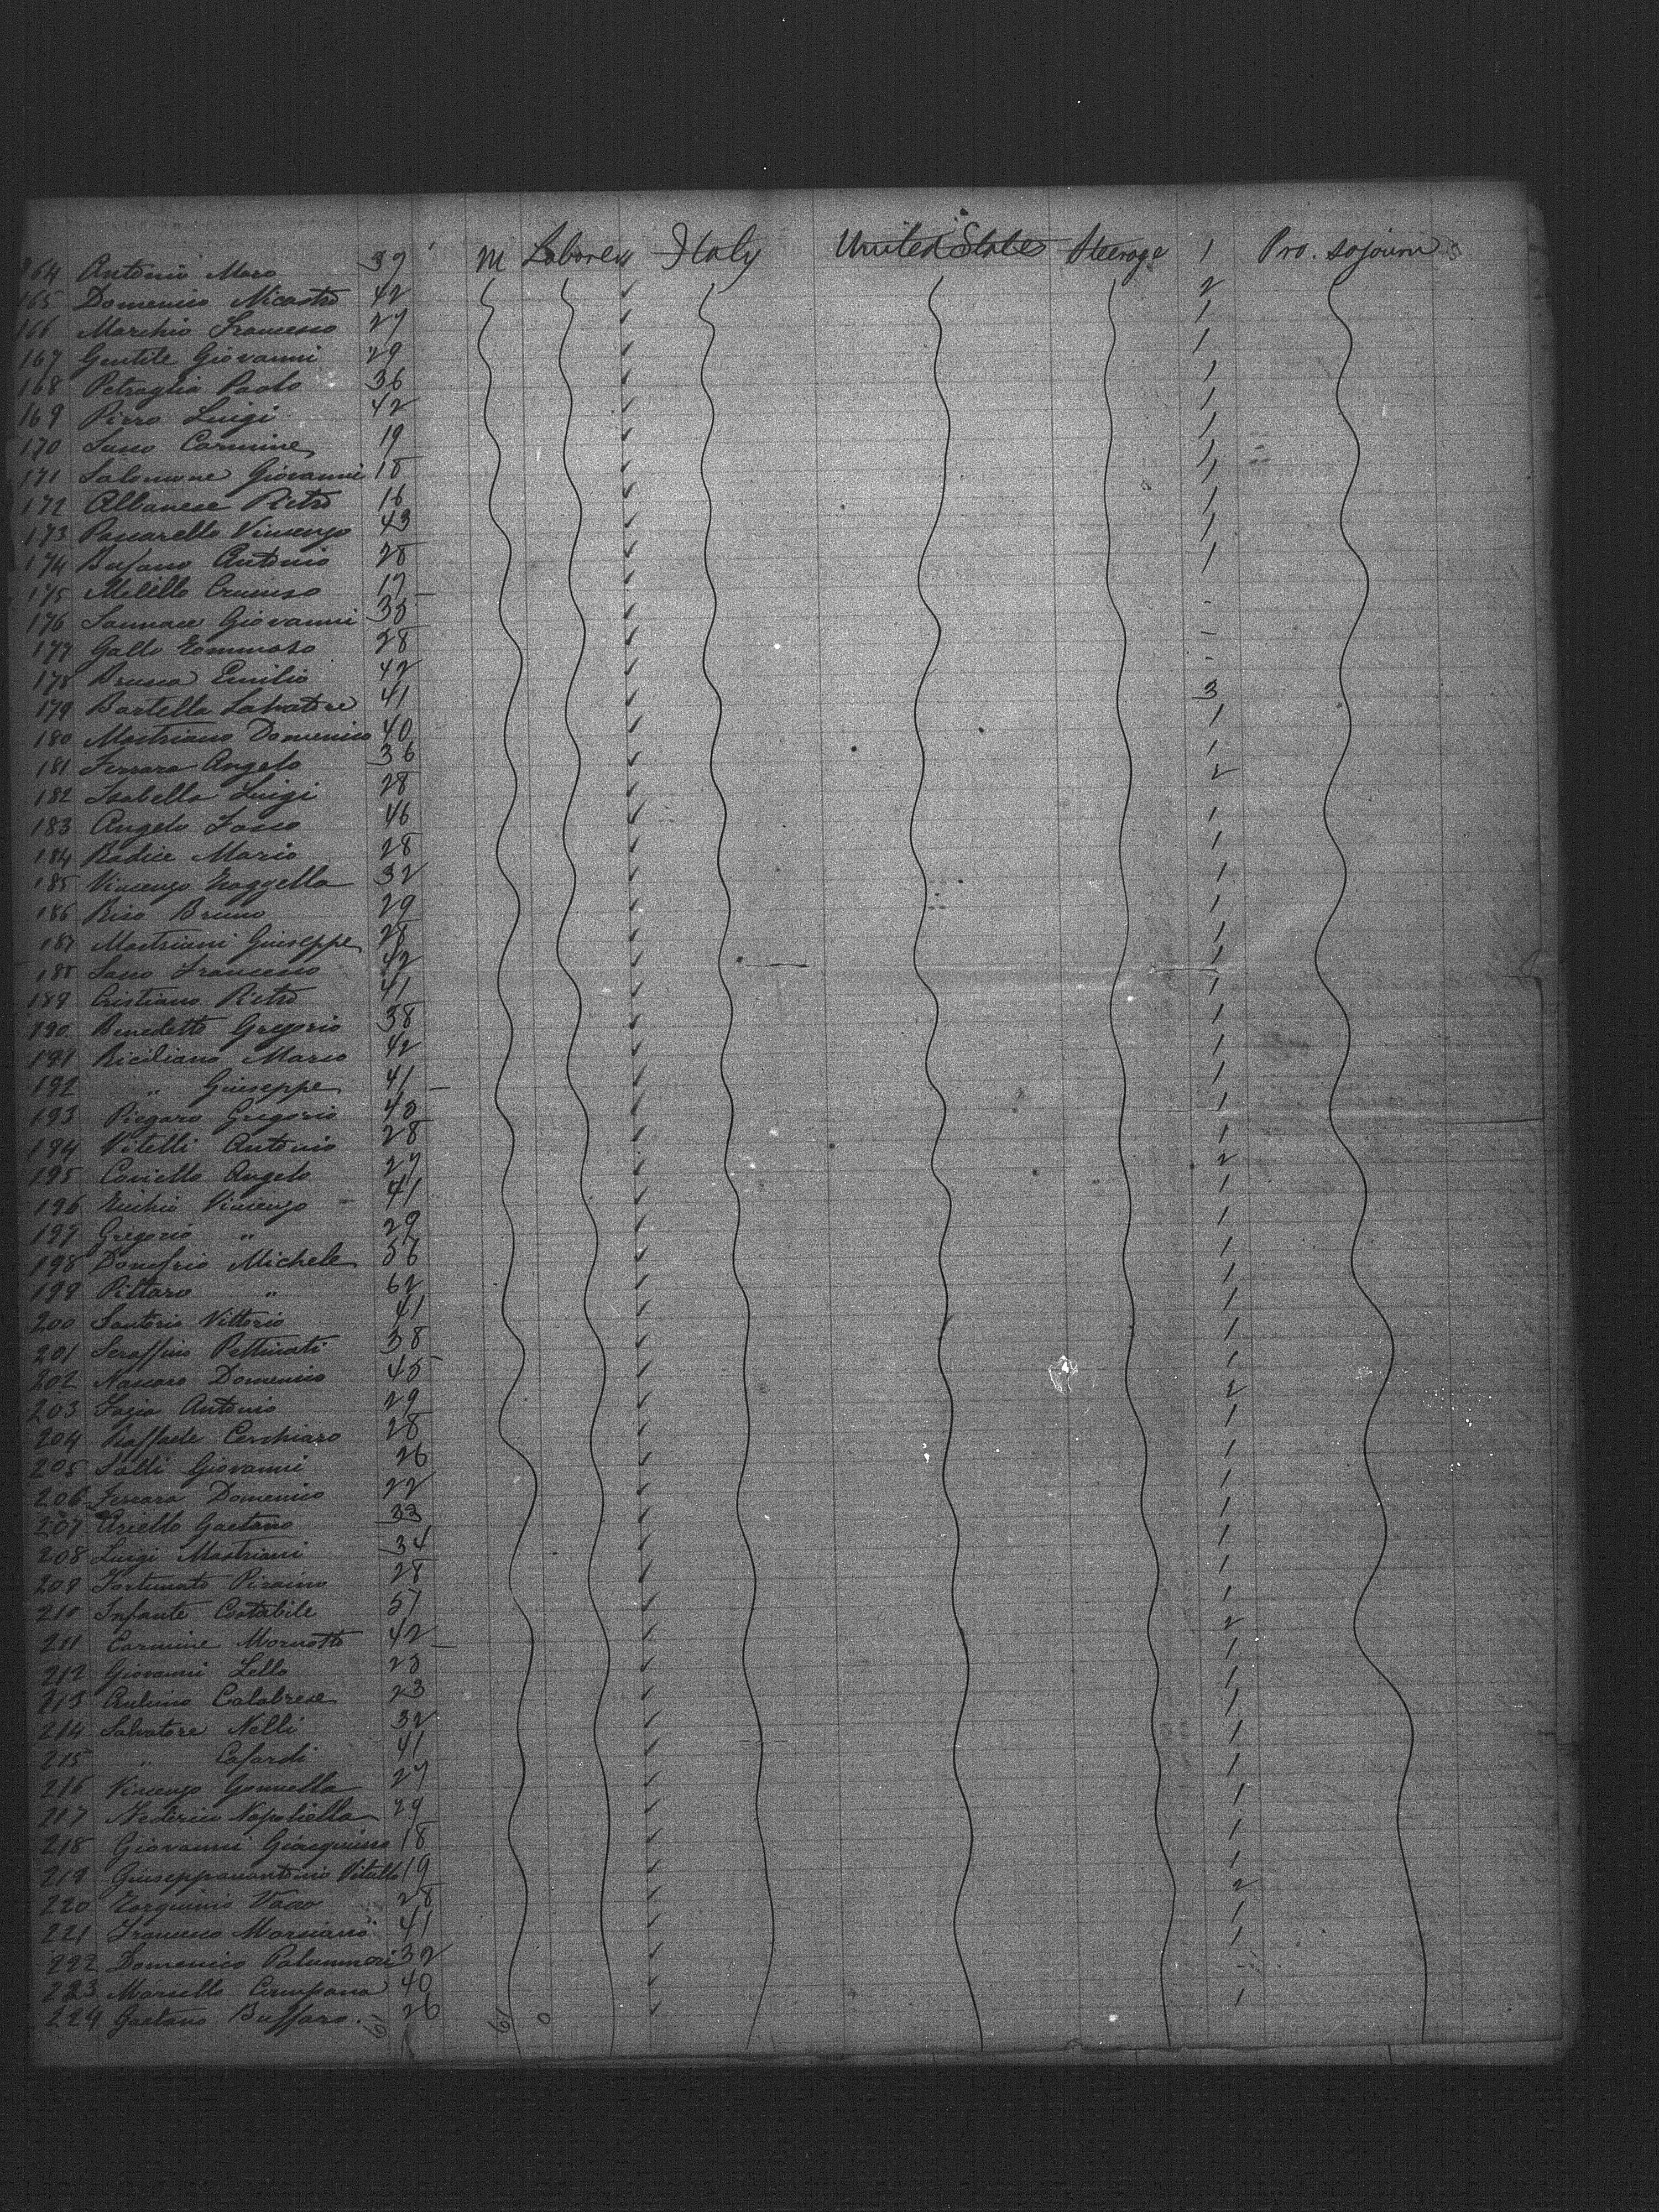 164 Antonio Maro 39 M Laborers Italy United States Steerage 1 Pro. sojourn
165 Domenico Nicastro 42 2
166 Marchio Francesco 27 1
167 Gentile Giovanni 29 1
168 Petraglia Paolo 36 1
169 Pirro Luigi 42 1
170 Sasso Carmine 19 1
171 Salomone Giovanni 18 1
172 Albanese Pietro 16 1
173 Pascarello Vincenzo 43 1
174 Bufano Antonio 28 1
175 Melillo 17
176 Giovanni 35 -
177 Gallo Tommaso 28 -
178 Brusca Emilio 42 -
179 Bartella Salvatore 41 3
180 Mastriano Domenico 40 1
181 Ferrara Angelo 36 1
182 Isabella Luigi 28 2
183 Angelo 46 1
184 Radice Mario 28 1
185 Vincenzo 32 1
186 Riso Bruno 29 1
187 Mastriani Giuseppe 28 1
188 Sasso Francesco 42 1
189 Cristiano Pietro 41 1
190 Benedetto Gregorio 38 1
191 Riciliano Marco 42 1
192 " Giuseppe 41 - 1
193 Piegaro Gregorio 45 1
194 Vitelli Antonio 28 1
195 Coviello Angelo 27 2
196 Vincenzo 41 1
197 Gregorio " 29 1
198 Donofrio Michele 56 1
199 Pittaro " 62 1
200 Santorio Vittorio 41 1
201 Seraffino Pettinati 38 1
202 Domenico 45 1
203 Fazio Antonio 29 2
204 Raffaele Cerchiaro 28 1
205 Salli Giovanni 26 1
206 Ferrara Domenico 22 1
207 Ariello Gaetano 33 1
208 Luigi Mastriani 34 1
209 Fortunato Piraino 28 1
210 Infante Costabile 57 1
211 Carmine 42 - 2
212 Giovanni Lello 25 1
213 Calabrese 23 1
214 Salvatore Nelli 32 1
215 " Cafardi 41 1
216 Vincenzo Gonnella 27 1
217 Federico Napoliello 29 1
218 Giovanni Giacquinto 18 1
219 Vitullo 19 1
220 Torquinio Vasso 28 2
221 Francesco Marsiano 41 1
222 Domenico 32 1
223 Marsello Campana 40 -
224 Gaetano Buffaro. 26 1
61 61 0